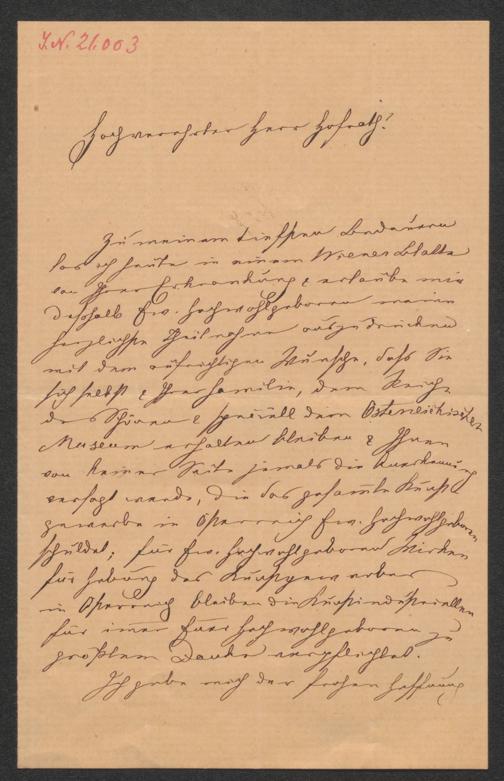 J.N. 21.003
Hochverehrter Herr Hofrath!
Zu meinem tiefsten Bedauern
las ich heute in einem Wiener Blatte
von Ihrer Erkrankung & erlaube mir
deßhalb Ew. Hochwohlgeboren meine
herzlichste Theilnahme auszudrücken
mit dem aufrichtigen Wunsche, daß Sie
sich selbst & Ihrer Familie, dem Reiche
des Schönen & speciell dem Österreichischen
Museum erhalten bleiben & Ihnen
von keiner Seite jemals die Anerkennung
versagt werde, die das gesammte Kunst
gewerbe in Österreich Ew. Hochwohlgeboren
schuldet; für Ew. Hochwohlgeboren Wirken
für Hebung des Kunstgewerbes
in Österreich bleiben die Kunstindustriellen
für immer Euer Hochwohlgeboren zu
größtem Danke verpflichtet.
Ich gebe mich der frohen Hoffnung